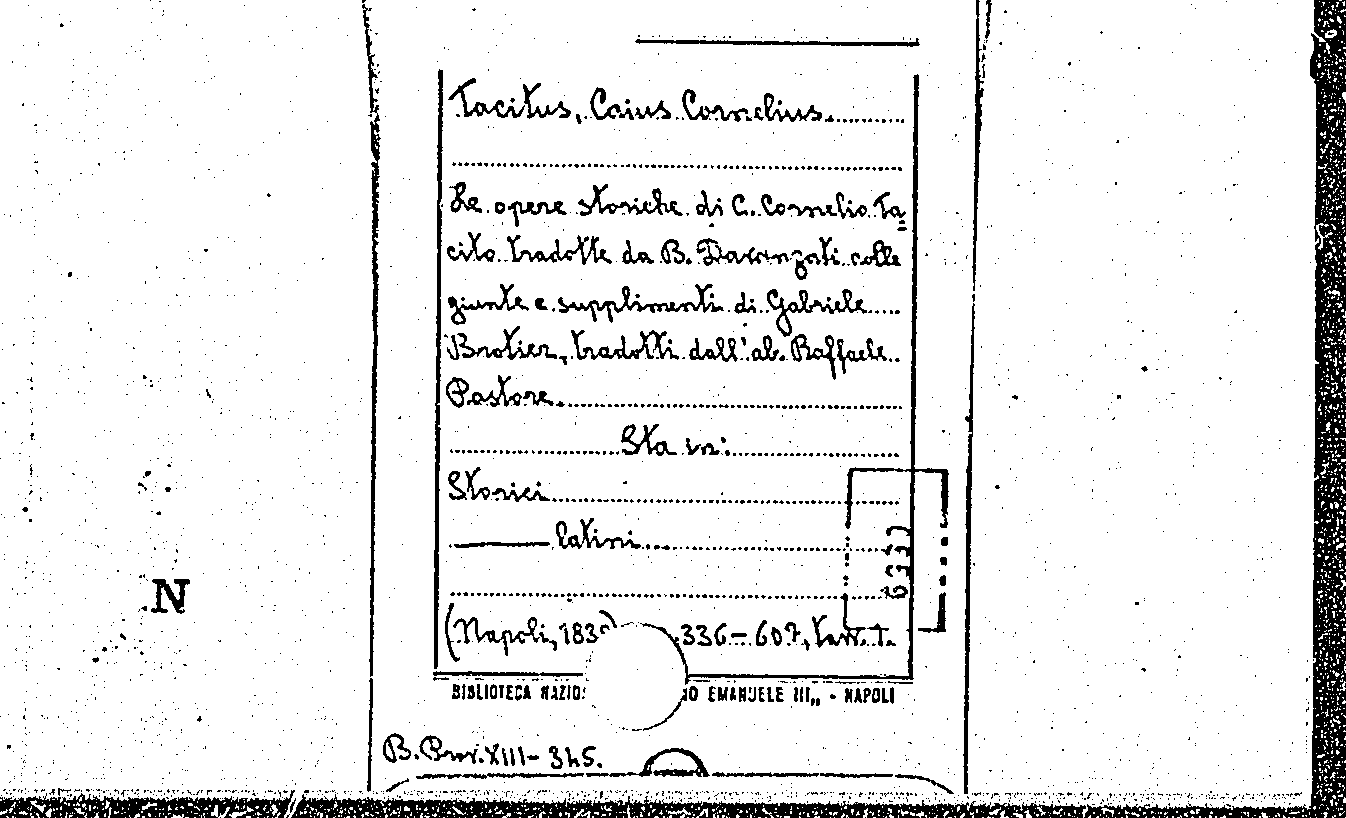 Tacitus, Caius Cornelius.
Le opere storiche di C. Cornelio Ta=
cito tradotte da B. Davanzati colle
giunte e supplimenti di Gabriele
Brotier, tradotti dall'ab. Raffaele
Pastore.
Sta in:
Storici
——— latini
(Napoli, 183 336-607, tav. 1.
6337
N
BIBLIOTECA NAZIO EMANUELE III,, - NAPOLI
B. Prov. XIII- 345.